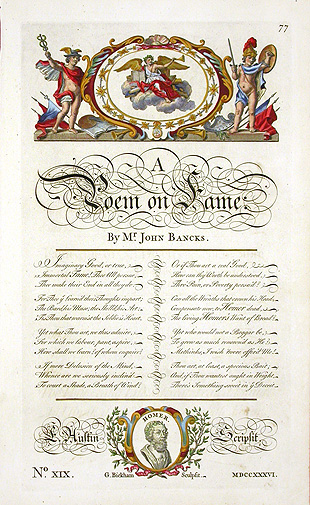 77
A
Poem on Fame:
By Mr. JOHN BANCKS.
Imaginary Good, or true,
Immortal Fame! Thee All persue,
Thee make their End in all they do.
For Thee
The Bard his Muse, the
The Hero
Yet what Thou art, we thus admire,
For which we labour, pant, aspire,
How shall we learn? of whom enquire?
If mere Delusion of the Mind,
Whence are we so inclin'd
To court a Shade, a Breath of Wind?
Or if Thou art a real Good,
How can thy Worth be understood,
Thro' Pain, or Poverty persu'd?
Can all the Wreaths that crown his Head,
Compensate now, to Homer dead,
The living Homer's Want of Bread?
Yet who would not a Beggar be,
To grow as much renown'd as He?
Methinks, I wish it were offer'd Me!
Thou art, at least, a specious Bait;
And, if Thou wantest ought in Weight,
There's Something sweet in
HOMER.
E. Austin Scripsit.
No. XIX.
G. Bickham Sculpsit.
MDCCXXXVI.